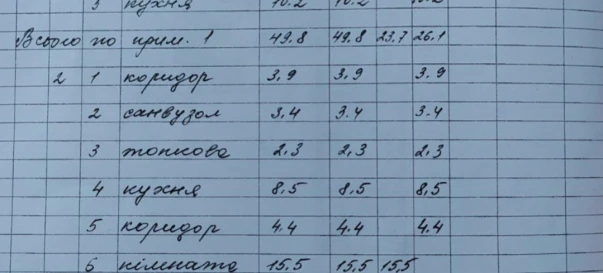 3 кухня 10.2 10.2 10.2
Всього по прим. 1 49.8 49.8 23.7 26.1
2 1 коридор 3,9 3,9 3.9
2 санвузол 3,4 3.4 3.4
3 топкова 2,3 2,3 2,3
4 кухня 8,5 8,5 8,5
5 коридор 4.4 4.4 4.4
6 кімната 15.5 15,5 15,5